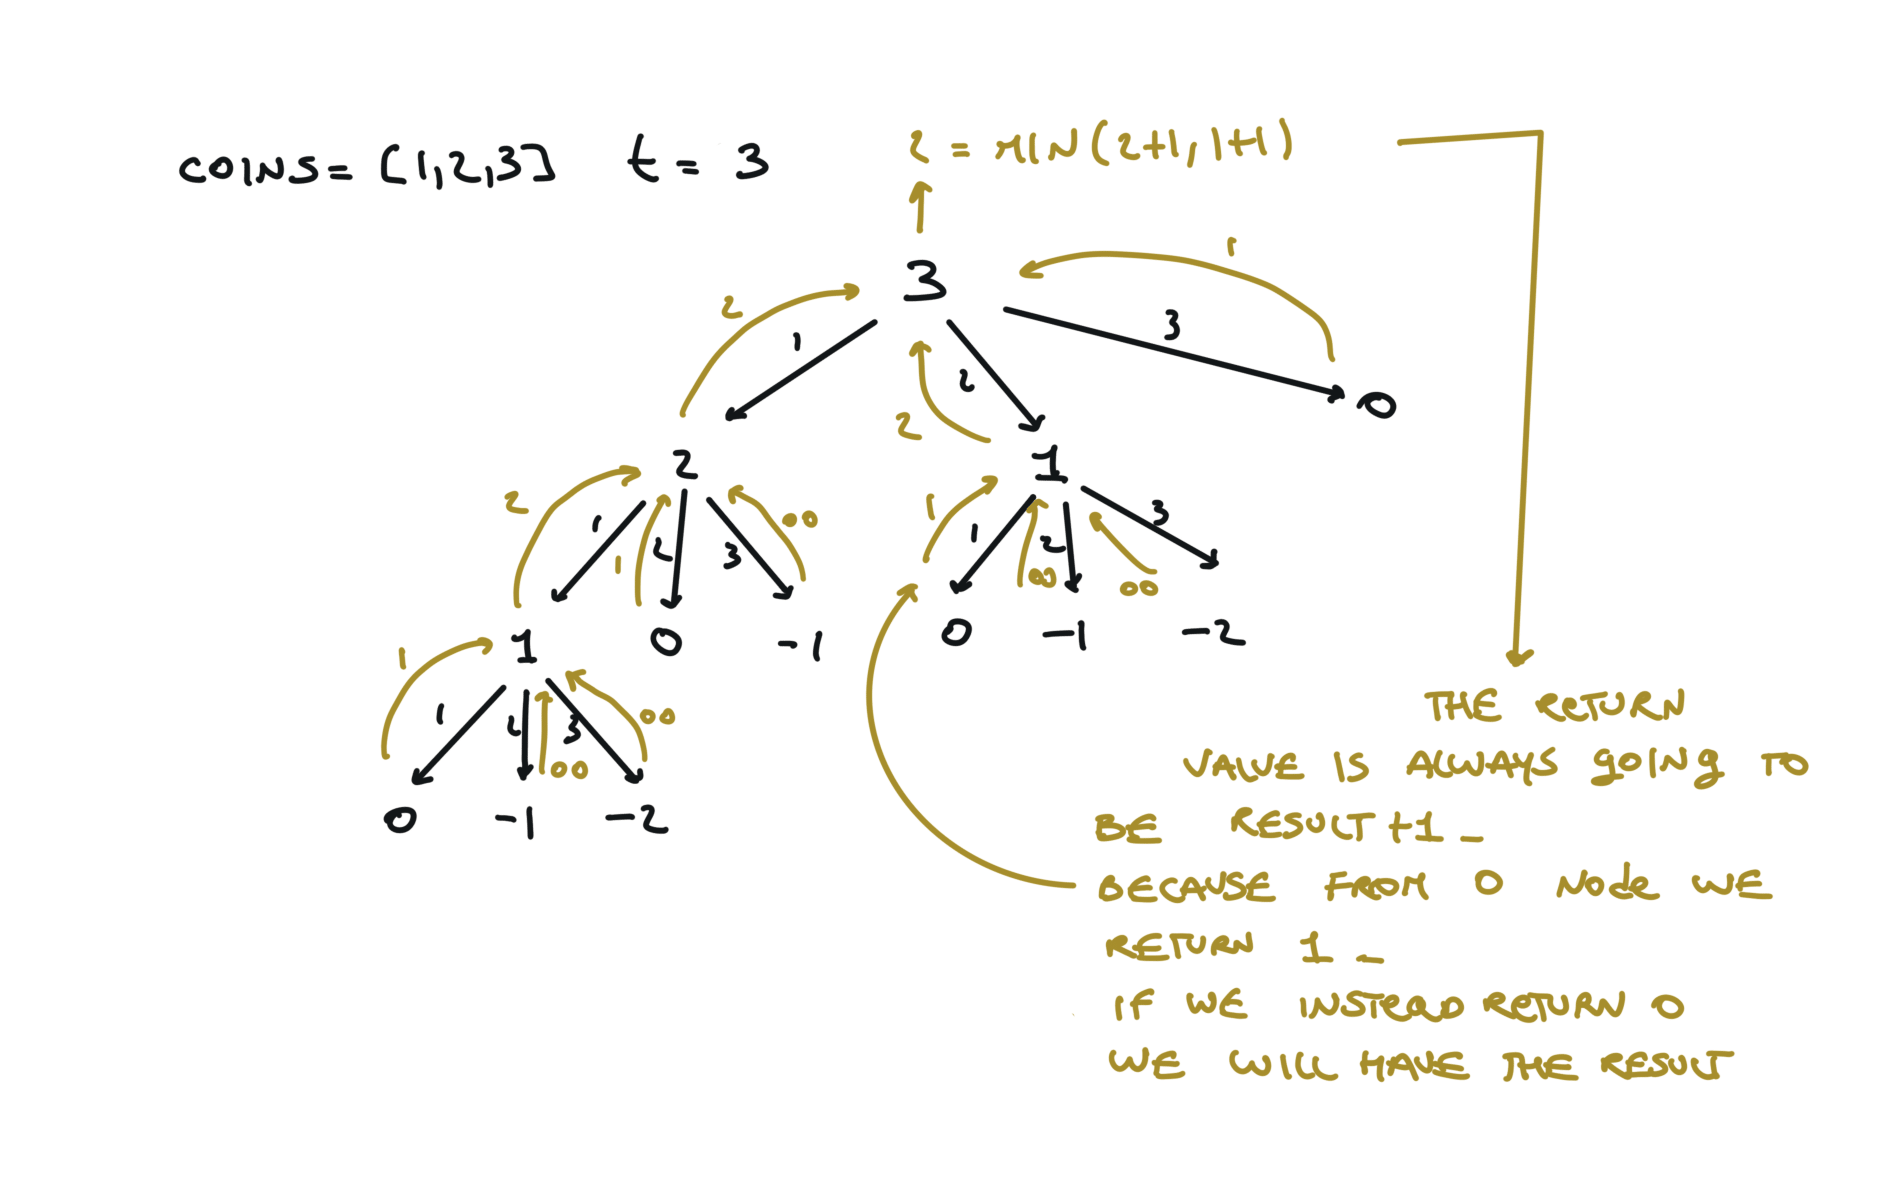 COINS = [1,2,3] t = 3
2 = MIN(2+1, 1+1)
3
2 1 2 2 3 1
2 1 0
2 1 1 2 3 ∞
1 1 ∞ 2 ∞ 3
1 0 -1
0 -1 -2
1 1 2 ∞ 3 ∞
0 -1 -2
THE RETURN
VALUE IS ALWAYS GOING TO
BE RESULT +1 _
BECAUSE FROM 0 NODE WE
RETURN 1 _
IF WE INSTEAD RETURN 0
WE WILL HAVE THE RESULT